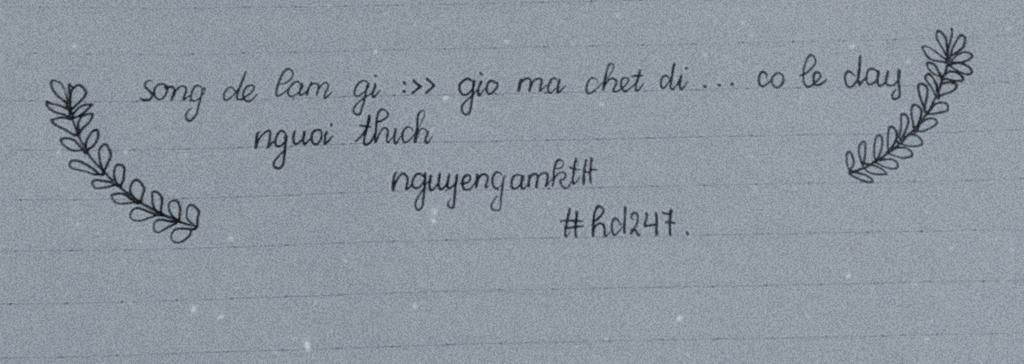 song de lam gi :>> gio ma chet di ... co le day
nguoi thich
nguyengamktH
#hd247.